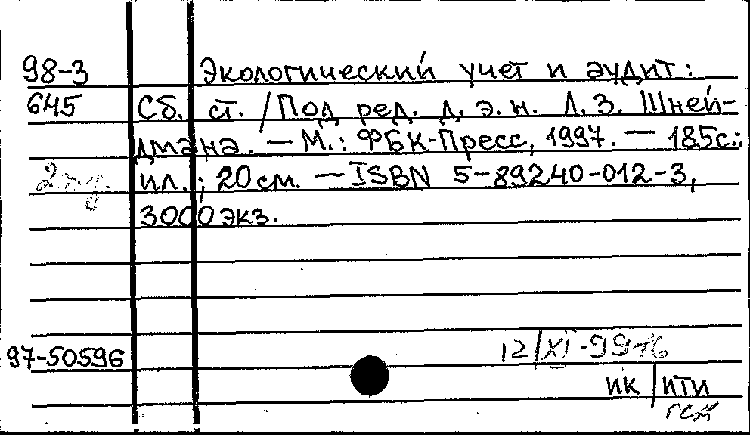 98-3 Экологический учет и аудит:
645 Сб. ст. / Под ред. д. э. н. Л. З. Шней-
дмана. — М.: ФБК-Пресс, 1997. — 185с.:
ил.; 20см. — ISBN 5-89240-012-3,
3000экз.
97-50596 12/XI-99
ик / ити